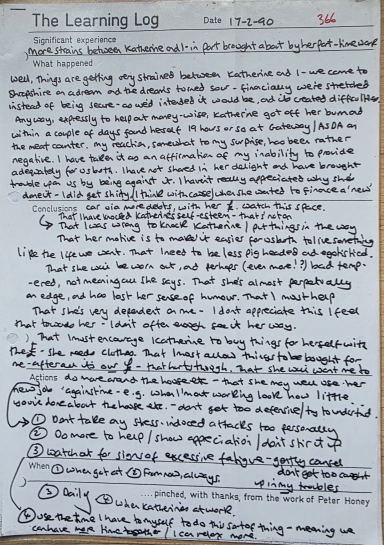 The Learning Log Date 17-2-90 366
Significant experience
more strains between Katherine and I - in part brought about by her part-time work
What happened
Well, things are getting very strained between Katherine and I - we came to
Shropshire on a dream and the dreams turned sour - financially we're stretched
instead of being secure - as we'd intended it would be, and it's created difficulties
Anyway, expressly to help out money-wise, Katherine got off her bum and
within a couple of days found herself 19 hours or so at Gateway / ASDA on
the meat counter. My reaction, somewhat to my surprise, has been rather
negative. I have taken it as an affirmation of my inability to provide
adequately for us both. I have not shared in her delight and have brought
trouble upon us by being against it. I haven't really appreciated why she's
done it - I did get shitty / I think with cause / when she wanted to finance a 'new'
car via more debts, with her £. Watch this space.
Conclusions
That I have knocked Katherine's self-esteem - that's not on
That I was wrong to knock Katherine / put things in the way
That her motive is to make it easier for us both to live something
like the life we want. That I need to be less pig headed and egotistical.
That she will be worn out, and perhaps (even more!?) bad temp-
-ered, not meaning all she says. That she's almost perpetually
on edge, and has lost her sense of humour. That I must help
That she's very dependent on me - I don't appreciate this I feel
that towards her - I don't often enough see it her way.
That I must encourage Katherine to buy things for herself with
the £ - she needs clothes. That I must allow things to be bought for
me - after all its our £ - that hurts though. That she will want me to
Actions do more around the house etc - that she may well use her
'new job' 'against me' - e.g. when I'm not working look how little
you've done about the house etc. - don't get too defensive / try to understand.
① Dont take any stress-induced attacks too personally
② Do more to help / show appreciation / don't shirk it
③ Watch for signs of excessive fatigue - gently cancel
don't get too caught
up in my troubles
When ① when got at ② From now, always
③ Daily ④ when Katherine's at work.
.... pinched, with thanks, from the work of Peter Honey
④ Use the time I have to myself to do this sort of thing - meaning we
can have more time together / I can relax more.